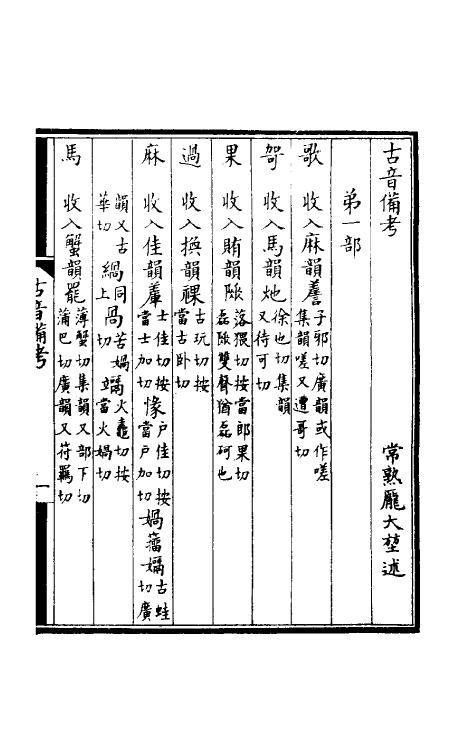 古音備考
常熟龐大堃述
第一部
歌　收入麻韻䕒子邪切廣韻或作嗟集韻嗟又遭哥切
哿　收入馬韻灺徐也切集韻又待可切
果　收入賄韻䠿落猥切按當郎果切磊䠿雙聲猶磊砢也
過　收入換韻祼古玩切按當古卧切
麻　收入佳韻𦍱士佳切按當士加切㥟戶佳切按當戶加切媧䔇𡡗古蛙切廣
韻又古華切緺同上咼苦媧切䵷火鼃切按當火媧切
馬　收入蟹韻罷薄蟹切集韻又部下切蒲巴切廣韻又符羈切
古音備考
一